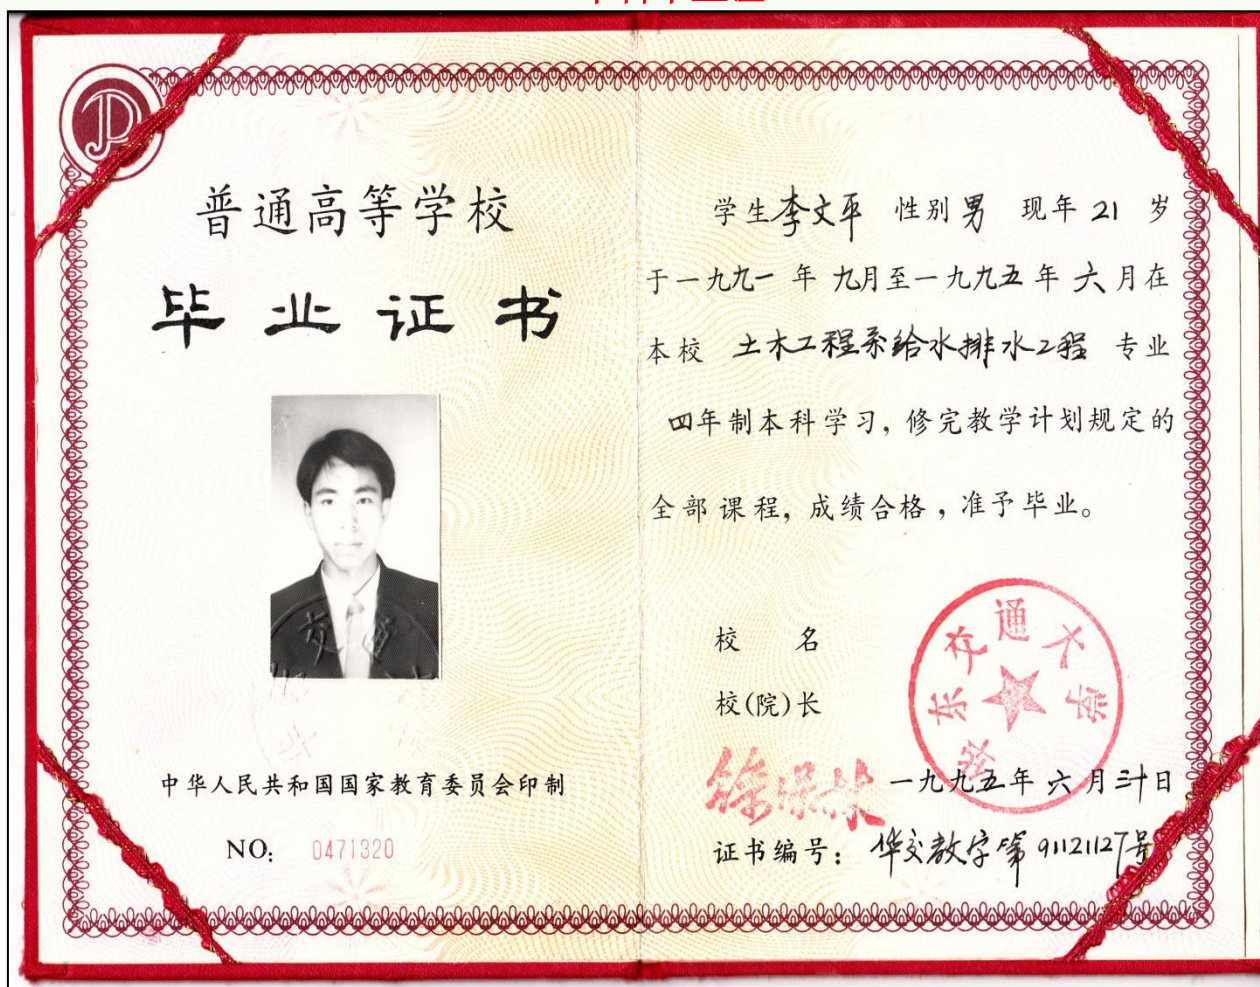 普通高等学校
毕业证书
中华人民共和国国家教育委员会印制
NO: 0471320
学生李文平 性别男 现年21岁
于一九九一年九月至一九九五年六月在
本校 土木工程系给水排水工程 专业
四年制本科学习，修完教学计划规定的
全部课程，成绩合格，准予毕业。
校名
华东交通大学
校(院)长
一九九五年六月三十日
证书编号：华交教字第91121127号